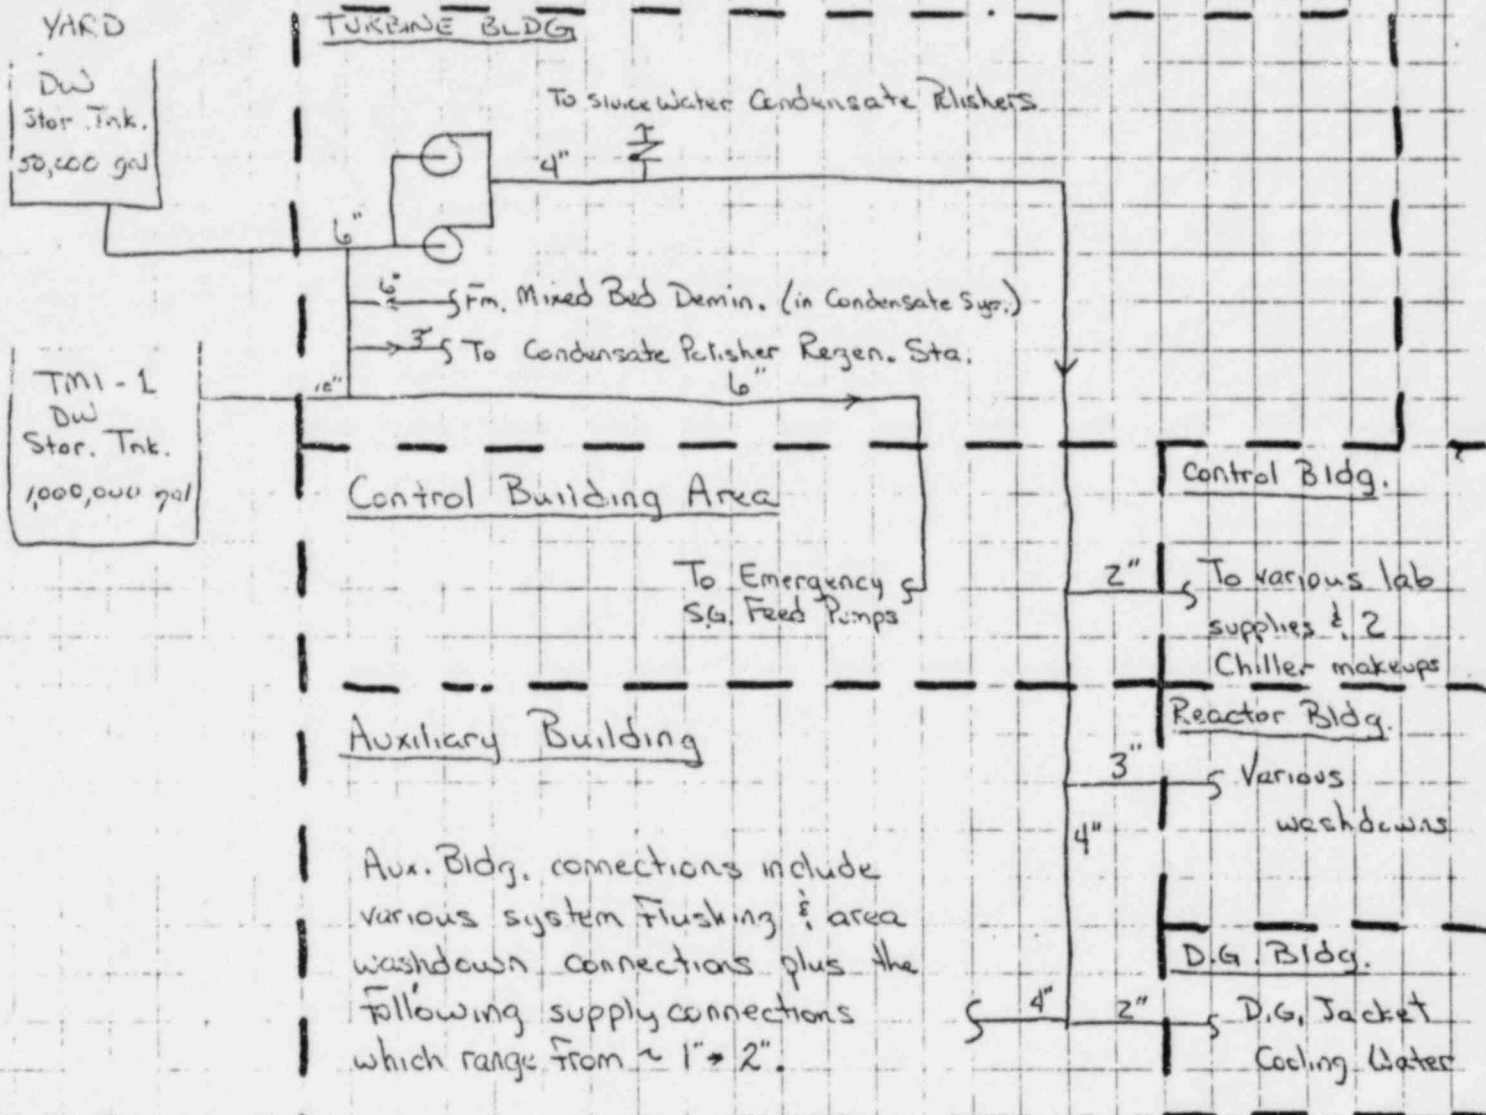 YARD
TURBINE BLDG
DW
Stor. Tnk.
50,000 gal
To sluice Water Condensate Polishers
4"
6"
6"
Fm. Mixed Bed Demin. (in Condensate Sys.)
3"
To Condensate Polisher Regen. Sta.
6"
10"
TMI-1
DW
Stor. Tnk.
1,000,000 gal
Control Building Area
Control Bldg.
To Emergency
S.G. Feed Pumps
2"
To various lab
supplies & 2
Chiller makeups
Auxiliary Building
Reactor Bldg.
3"
Various
washdowns
4"
Aux. Bldg. connections include
various system Flushing & area
washdown connections plus the
Following supply connections
which range From ~ 1" → 2".
D.G. Bldg.
4"
2"
D.G. Jacket
Cooling Water